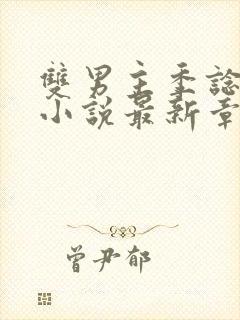 雙男主重諗
小說最新章
曾尹郁